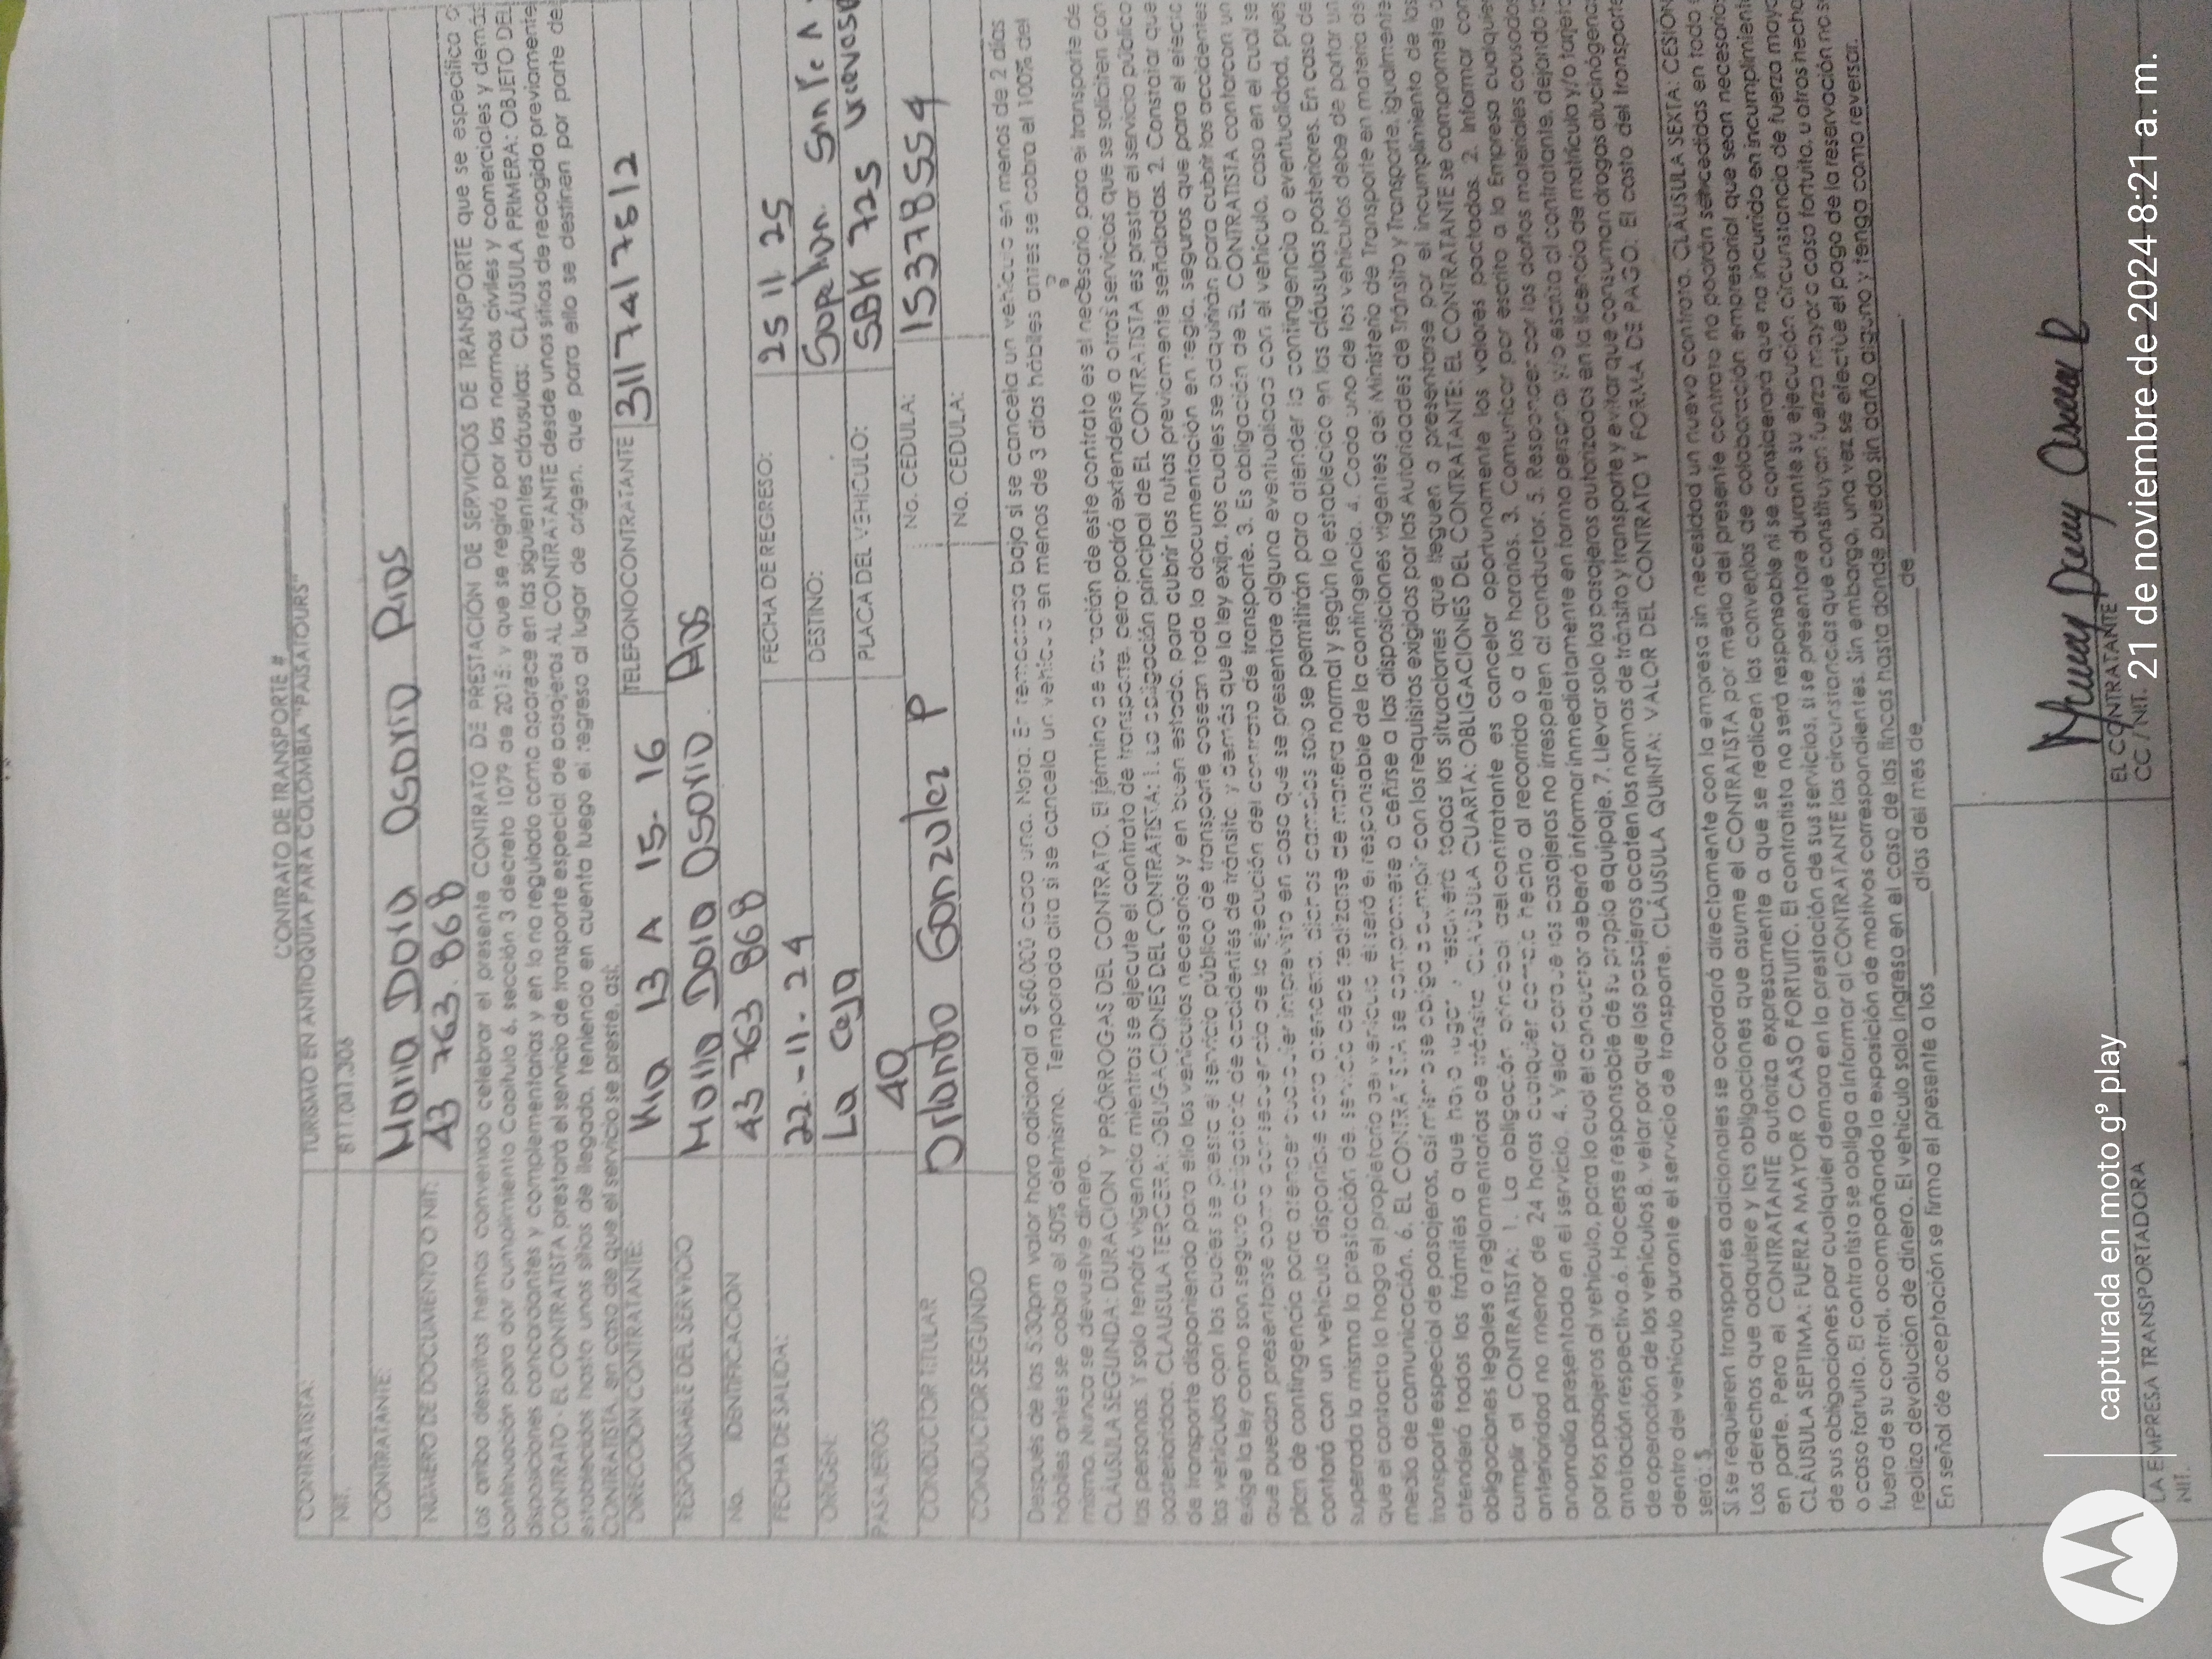 CONTRATO DE TRANSPORTE #
CONTRATISTA: TURISMO EN ANTIOQUIA PARA COLOMBIA "PAISATOURS"
NIT. 811.041.306
CONTRATANTE: Maria Doia Osorio Rios
NUMERO DE DOCUMENTO O NIT: 43 763.868
Los arriba descritos hemos convenido celebrar el presente CONTRATO DE PRESTACIÓN DE SERVICIOS DE TRANSPORTE que se especifica a
continuación para dar cumplimiento Capítulo 6, sección 3 decreto 1079 de 2015; y que se regirá por las normas civiles y comerciales y demás
disposiciones concordantes y complementarias y en lo no regulado como aparece en las siguientes cláusulas: CLÁUSULA PRIMERA: OBJETO DEL
CONTRATO - EL CONTRATISTA prestará el servicio de transporte especial de pasajeros AL CONTRATANTE desde unos sitios de recogida previamente
establecidos hasta unos sitios de llegada, teniendo en cuenta luego el regreso al lugar de origen, que para ello se destinen por parte del
CONTRATISTA, en caso de que el servicio se preste, así:
DIRECCION CONTRATANTE: Kra 13 A 15-16 TELEFONOCONTRATANTE 3117417812
RESPONSABLE DEL SERVICIO Maria Doia Osorio Rios
No. IDENTIFICACION 43 763 868
FECHA DE SALIDA: 22-11-24 FECHA DE REGRESO: 25 11 25
ORIGEN: La Ceja DESTINO:
PASAJEROS 40 PLACA DEL VEHICULO: SBK 725
CONDUCTOR TITULAR Orlando Gonzalez P No. CEDULA: 15378554
CONDUCTOR SEGUNDO No. CEDULA:
Después de las 5:30pm valor hora adicional a $60.000 cada una. Nota: En temporada baja si se cancela un vehículo en menos de 2 días
hábiles antes se cobra el 50% del mismo. Temporada alta si se cancela un vehículo en menos de 3 días hábiles antes se cobra el 100% del
mismo. Nunca se devuelve dinero.
CLÁUSULA SEGUNDA: DURACION Y PRÓRROGAS DEL CONTRATO. El término de duración de este contrato es el necesario para el transporte de
las personas. Y solo tendrá vigencia mientras se ejecute el contrato de transporte, pero podrá extenderse a otros servicios que se soliciten con
posterioridad. CLAUSULA TERCERA: OBLIGACIONES DEL CONTRATISTA: 1. La obligación principal de EL CONTRATISTA es prestar el servicio público
de transporte disponiendo para ello los vehículos necesarios y en buen estado, para cubrir las rutas previamente señaladas. 2. Constatar que
los vehículos con los cuales se presta el servicio público de transporte posean toda la documentación en regla, seguros que para el efecto
exige la ley como son seguro obligatorio de accidentes de tránsito y demás que la ley exija, los cuales se adquirirán para cubrir los accidentes
que puedan presentarse como consecuencia de la ejecución del contrato de transporte. 3. Es obligación de EL CONTRATISTA contar con un
plan de contingencia para atender cualquier imprevisto en caso que se presentare alguna eventualidad con el vehículo, caso en el cual se
contará con un vehículo disponible para atenderla, dichos cambios solo se permitirán para atender la contingencia o eventualidad, pues
superada la misma la prestación del servicio debe realizarse de manera normal y según lo establecido en las cláusulas posteriores. En caso de
que el contacto lo haga el propietario del vehículo él será el responsable de la contingencia. 4. Cada uno de los vehículos debe de portar un
medio de comunicación. 6. EL CONTRATISTA se compromete a ceñirse a las disposiciones vigentes del Ministerio de Transporte en materia de
transporte especial de pasajeros, así mismo se obliga a cumplir con los requisitos exigidos por las Autoridades de Tránsito y Transporte, igualmente
atenderá todos los trámites a que haya lugar y resolverá todas las situaciones que lleguen a presentarse por el incumplimiento de las
obligaciones legales o reglamentarias de tránsito. CLÁUSULA CUARTA: OBLIGACIONES DEL CONTRATANTE: EL CONTRATANTE se compromete a
cumplir al CONTRATISTA: 1. La obligación principal del contratante es cancelar oportunamente los valores pactados. 2. Informar con
anterioridad no menor de 24 horas cualquier cambio hecho al recorrido o a los horarios. 3. Comunicar por escrito a la Empresa cualquier
anomalía presentada en el servicio. 4. Velar porque los pasajeros no irrespeten al conductor. 5. Responder por los daños materiales causados
por los pasajeros al vehículo, para lo cual el conductor deberá informar inmediatamente en forma personal y/o escrita al contratante, dejando la
anotación respectiva.6. Hacerse responsable de su propio equipaje. 7. Llevar solo los pasajeros autorizados en la licencia de matrícula y/o tarjeta
de operación de los vehículos 8. velar por que los pasajeros acaten las normas de tránsito y transporte y evitar que consuman drogas alucinógenas
dentro del vehículo durante el servicio de transporte. CLÁUSULA QUINTA: VALOR DEL CONTRATO Y FORMA DE PAGO. El costo del transporte
será: $
Si se requieren transportes adicionales se acordará directamente con la empresa sin necesidad un nuevo contrato. CLÁUSULA SEXTA: CESION
Los derechos que adquiere y las obligaciones que asume el CONTRATISTA por medio del presente contrato no podrán ser cedidas en todo
en parte. Pero el CONTRATANTE autoriza expresamente a que se realicen los convenios de colaboración empresarial que sean necesarios
CLÁUSULA SEPTIMA: FUERZA MAYOR O CASO FORTUITO. El contratista no será responsable ni se considerará que ha incurrido en incumplimiento
de sus obligaciones por cualquier demora en la prestación de sus servicios, si se presentare durante su ejecución circunstancia de fuerza mayor
o caso fortuito. El contratista se obliga a informar al CONTRATANTE las circunstancias que constituyan fuerza mayor o caso fortuito, u otros hechos
fuera de su control, acompañando la exposición de motivos correspondientes. Sin embargo, una vez se efectúe el pago de la reservación no se
realiza devolución de dinero. El vehículo solo ingresa en el caso de las fincas hasta donde pueda sin daño alguno y tenga como reversar.
En señal de aceptación se firma el presente a los ______ días del mes de ______ de ______.
LA EMPRESA TRANSPORTADORA EL CONTRATANTE
NIT. CC / NIT.
capturada en moto g⁹ play
21 de noviembre de 2024 8:21 a. m.